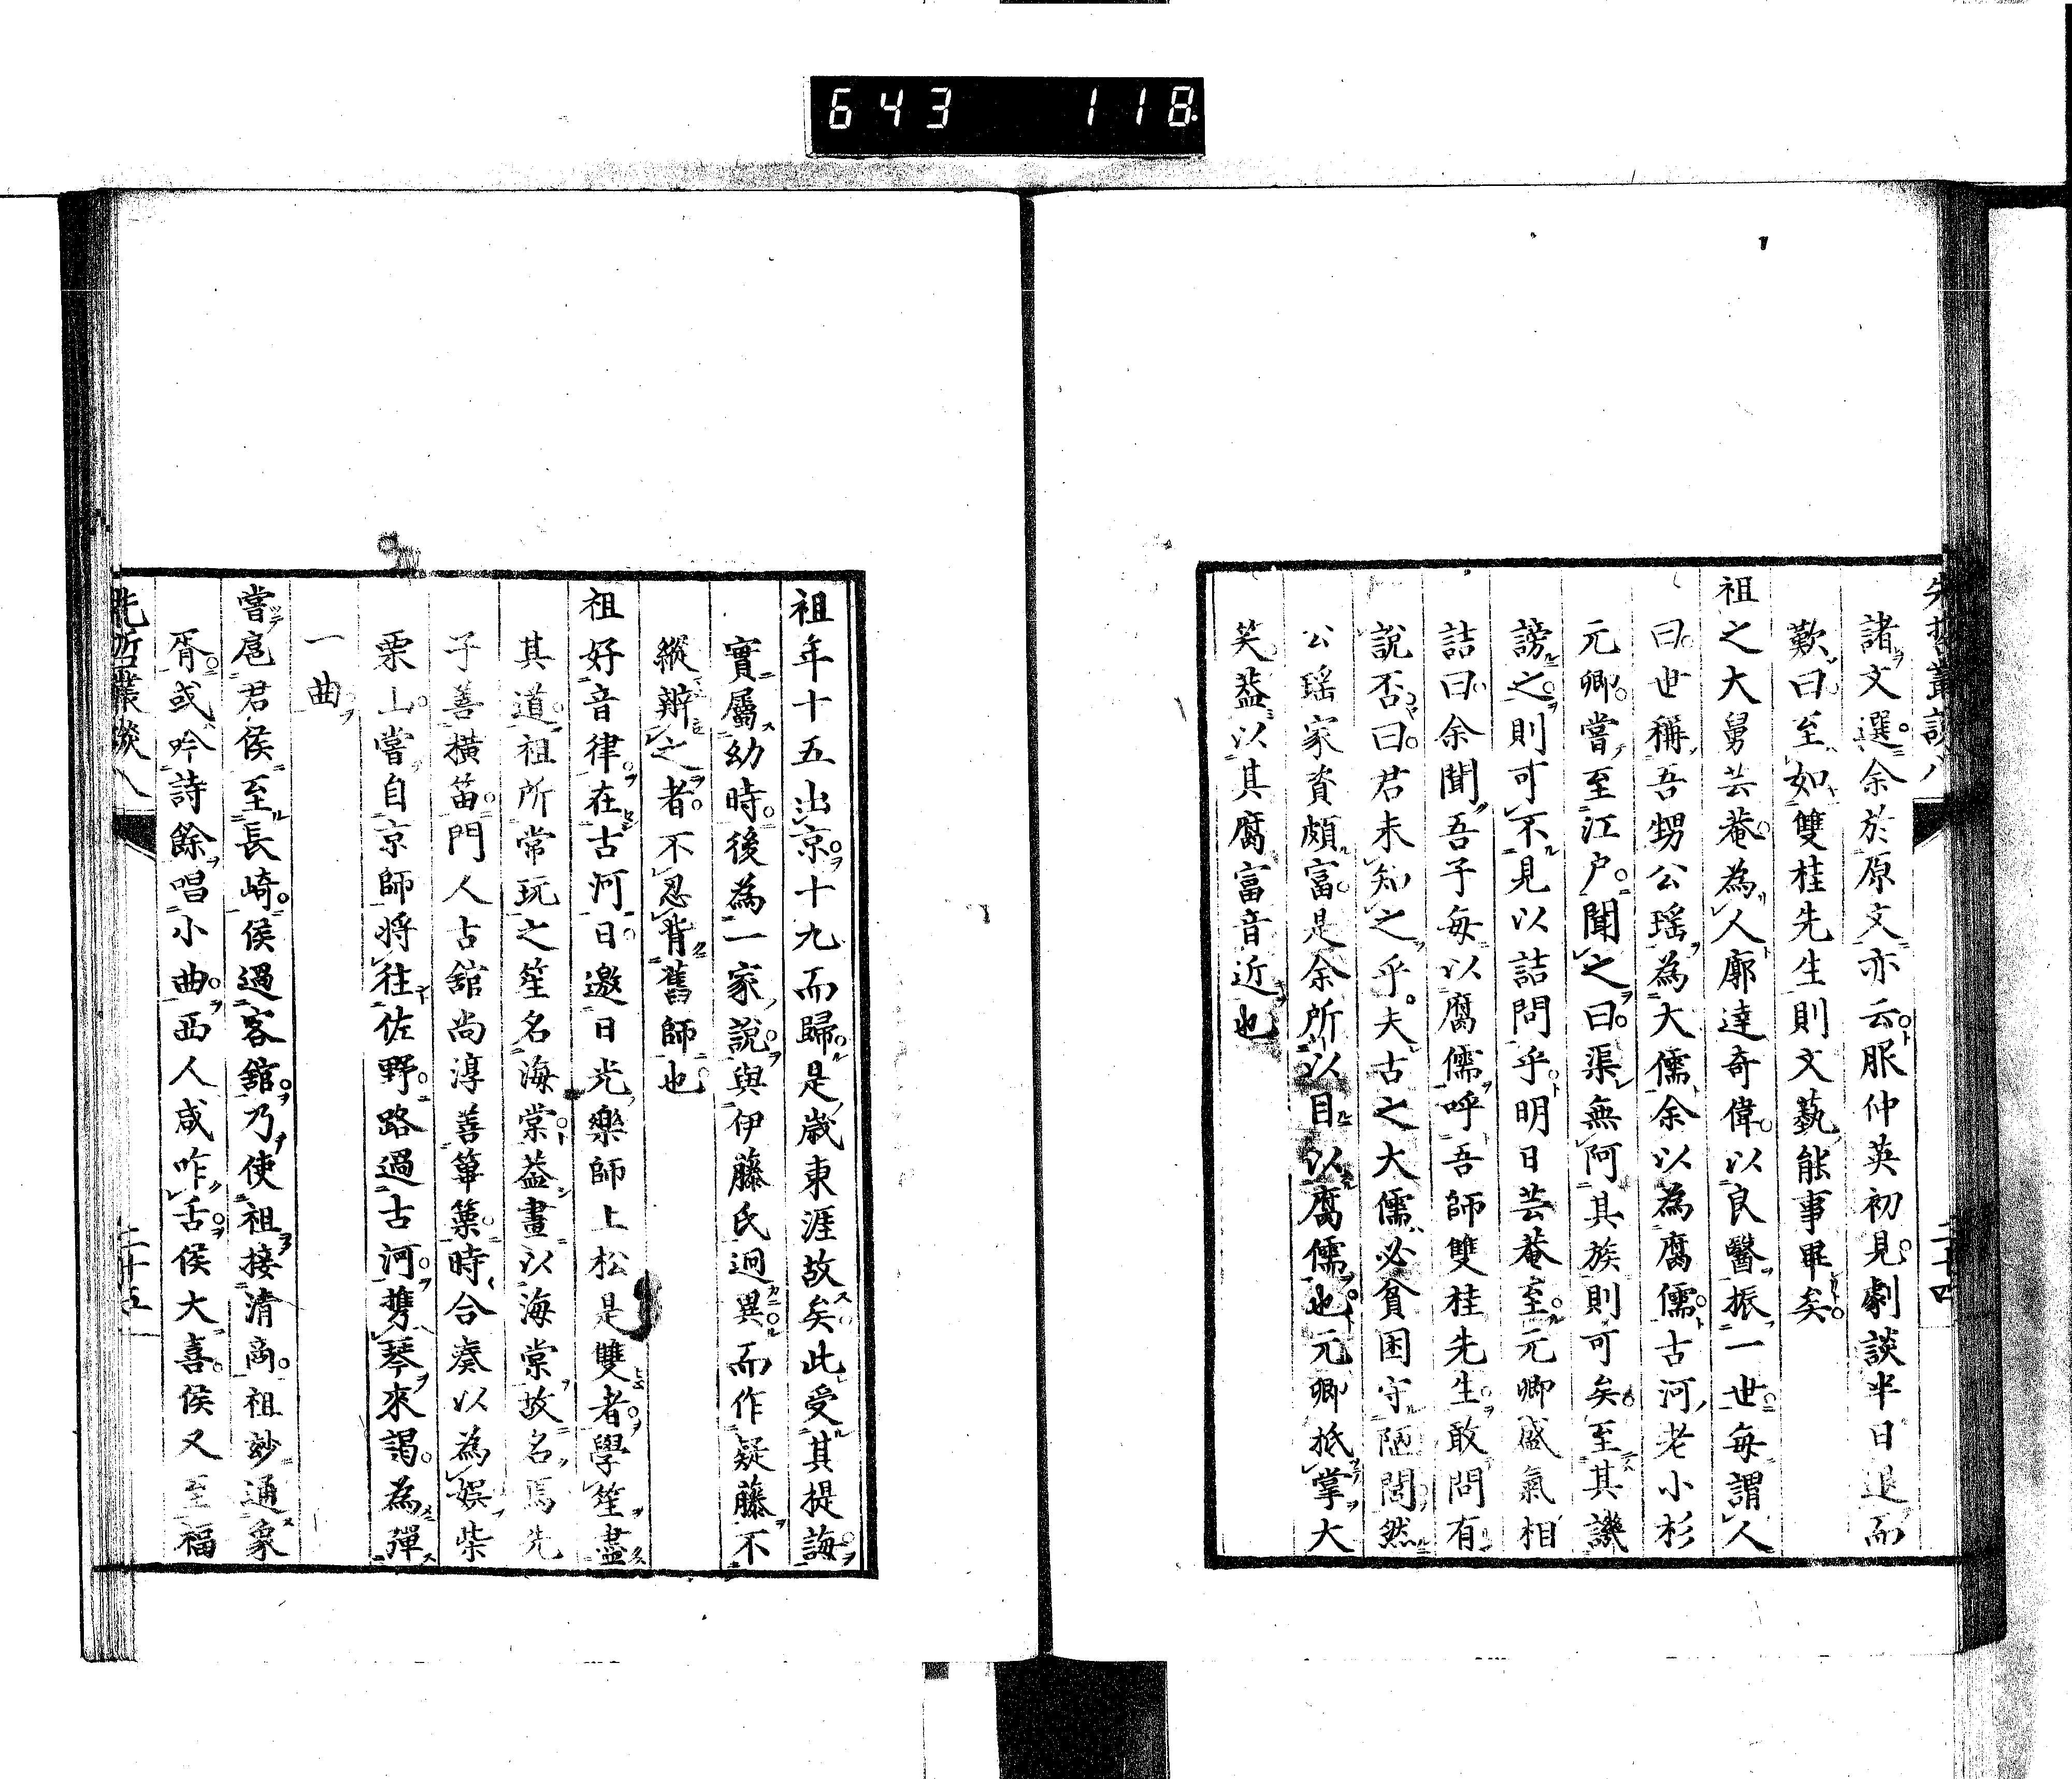 643 118
先哲叢談八 二十四
諸文選余於原文亦云服仲英初見劇談半日退而
歎曰至如雙桂先生則文藝能事畢矣
祖之大舅芸菴為人廓達奇偉以良醫振一世每謂人
曰世稱吾甥公瑶為大儒余以為腐儒古河老小杉
元卿嘗至江戶聞之曰渠無阿其族則可矣至其譏
謗之則可不見以詰問乎明日芸菴至元卿盛氣相
詰曰余聞吾子每以腐儒呼吾師雙桂先生敢問有
說否曰君未知之乎夫古之大儒必貧困守陋閭然
公瑶家資頗富是余所以目以腐儒也元卿抵掌大
笑葢以其腐富音近也
祖年十五出京十九而歸是歲東涯故矣此受其提誨
實屬幼時後為一家說與伊藤氏迥異而作疑藤不
縱辨之者不忍背舊師也
祖好音律在古河日邀日光樂師上松是雙者學笙盡
其道祖所常玩之笙名海棠葢畫以海棠故名焉先
子善橫笛門人古舘尚淳善篳篥時合奏以為娛柴
栗山嘗自京師將往佐野路過古河攜琴來謁為彈
一曲
嘗扈君侯至長崎侯過客舘乃使祖接清商祖妙通象
胥或吟詩餘唱小曲西人咸咋舌侯大喜侯又至福
先哲叢談八 二十五